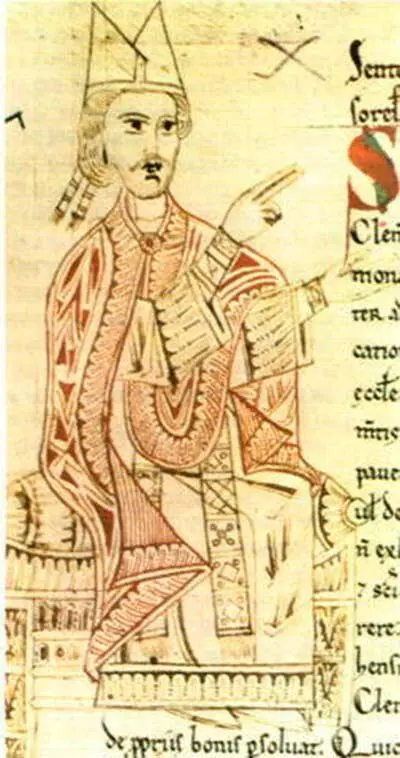 Sente
soret
S
Clem
mona
ter a
catio
eccle
paue
ul de
n exi
rere
bensi
Clem
de pprus bonis psoluat: Quic